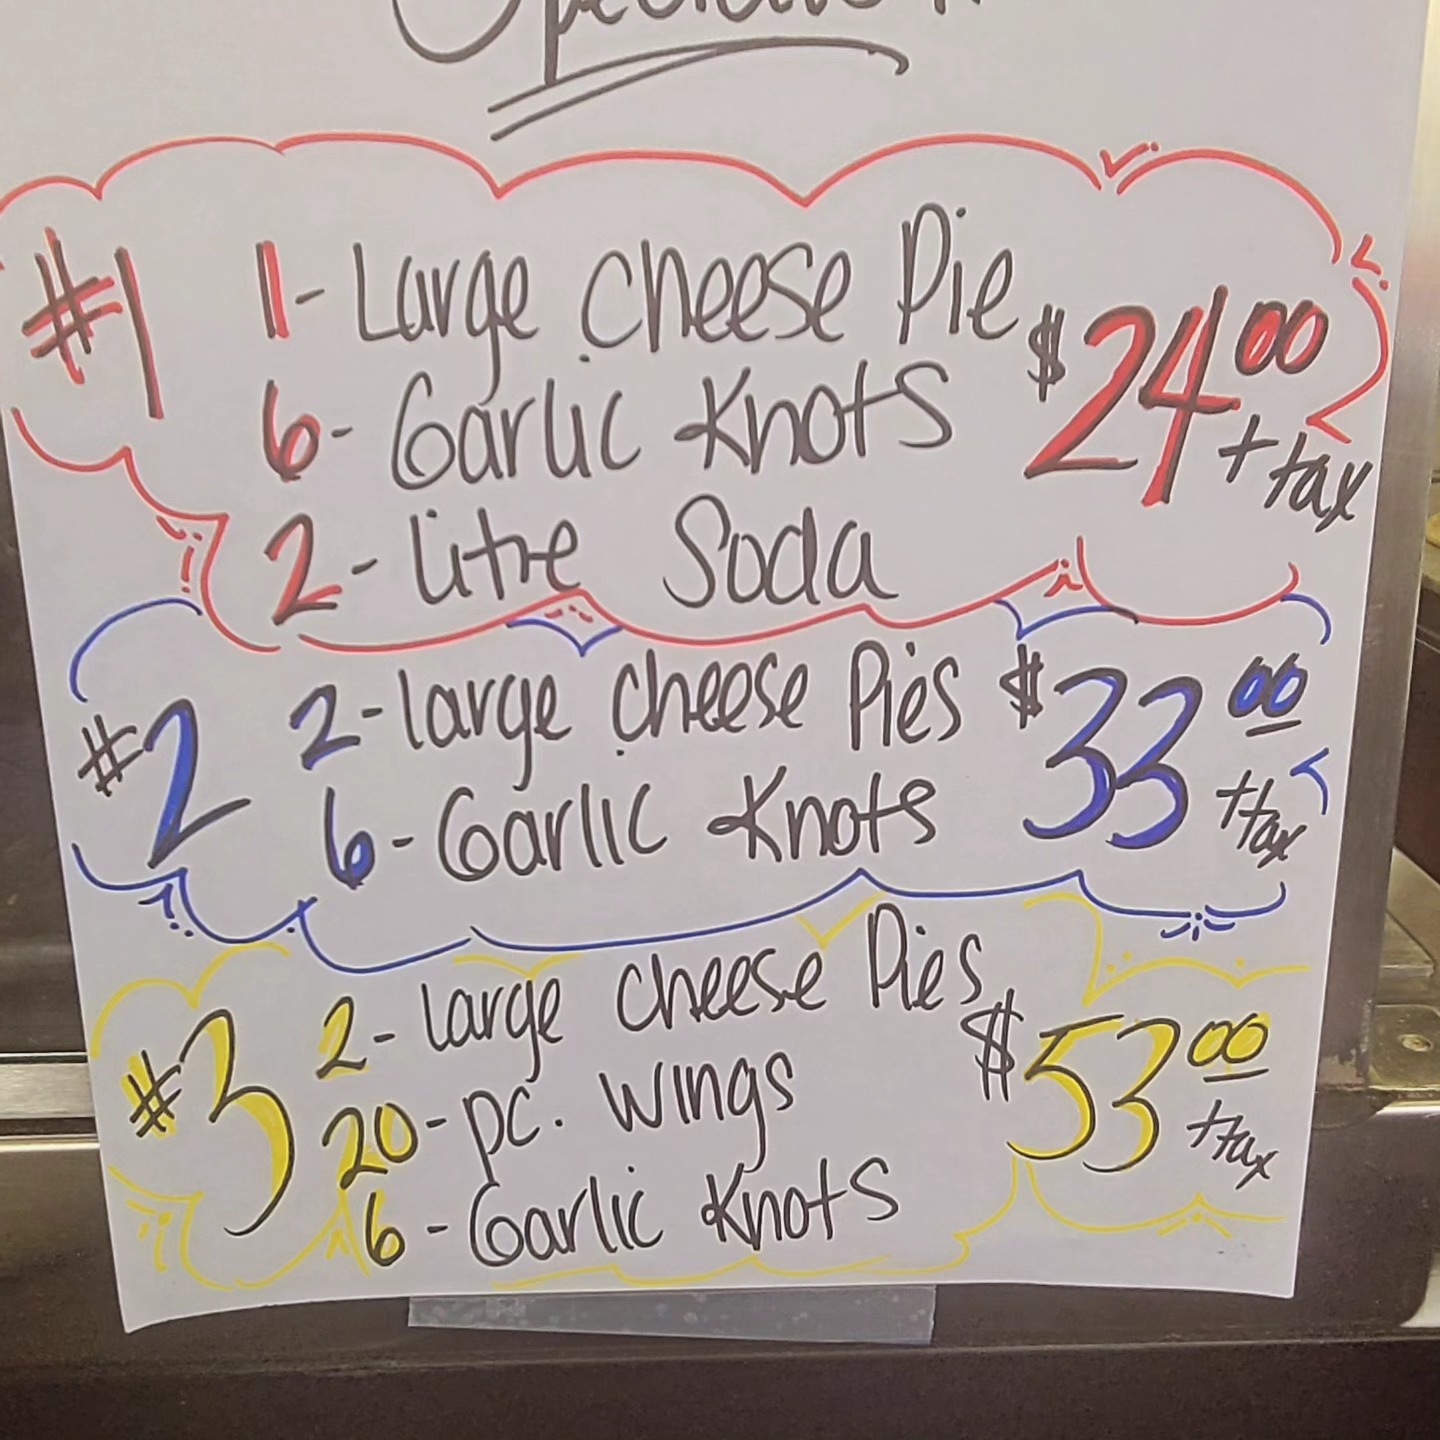 #1 1- Large Cheese Pie
6- Garlic Knots $24.00 + tax
2- Litre Soda
#2 2- Large Cheese Pies $33.00 + tax
6- Garlic Knots
#3 2- Large Cheese Pies $53.00 + tax
20- pc. Wings
6- Garlic Knots